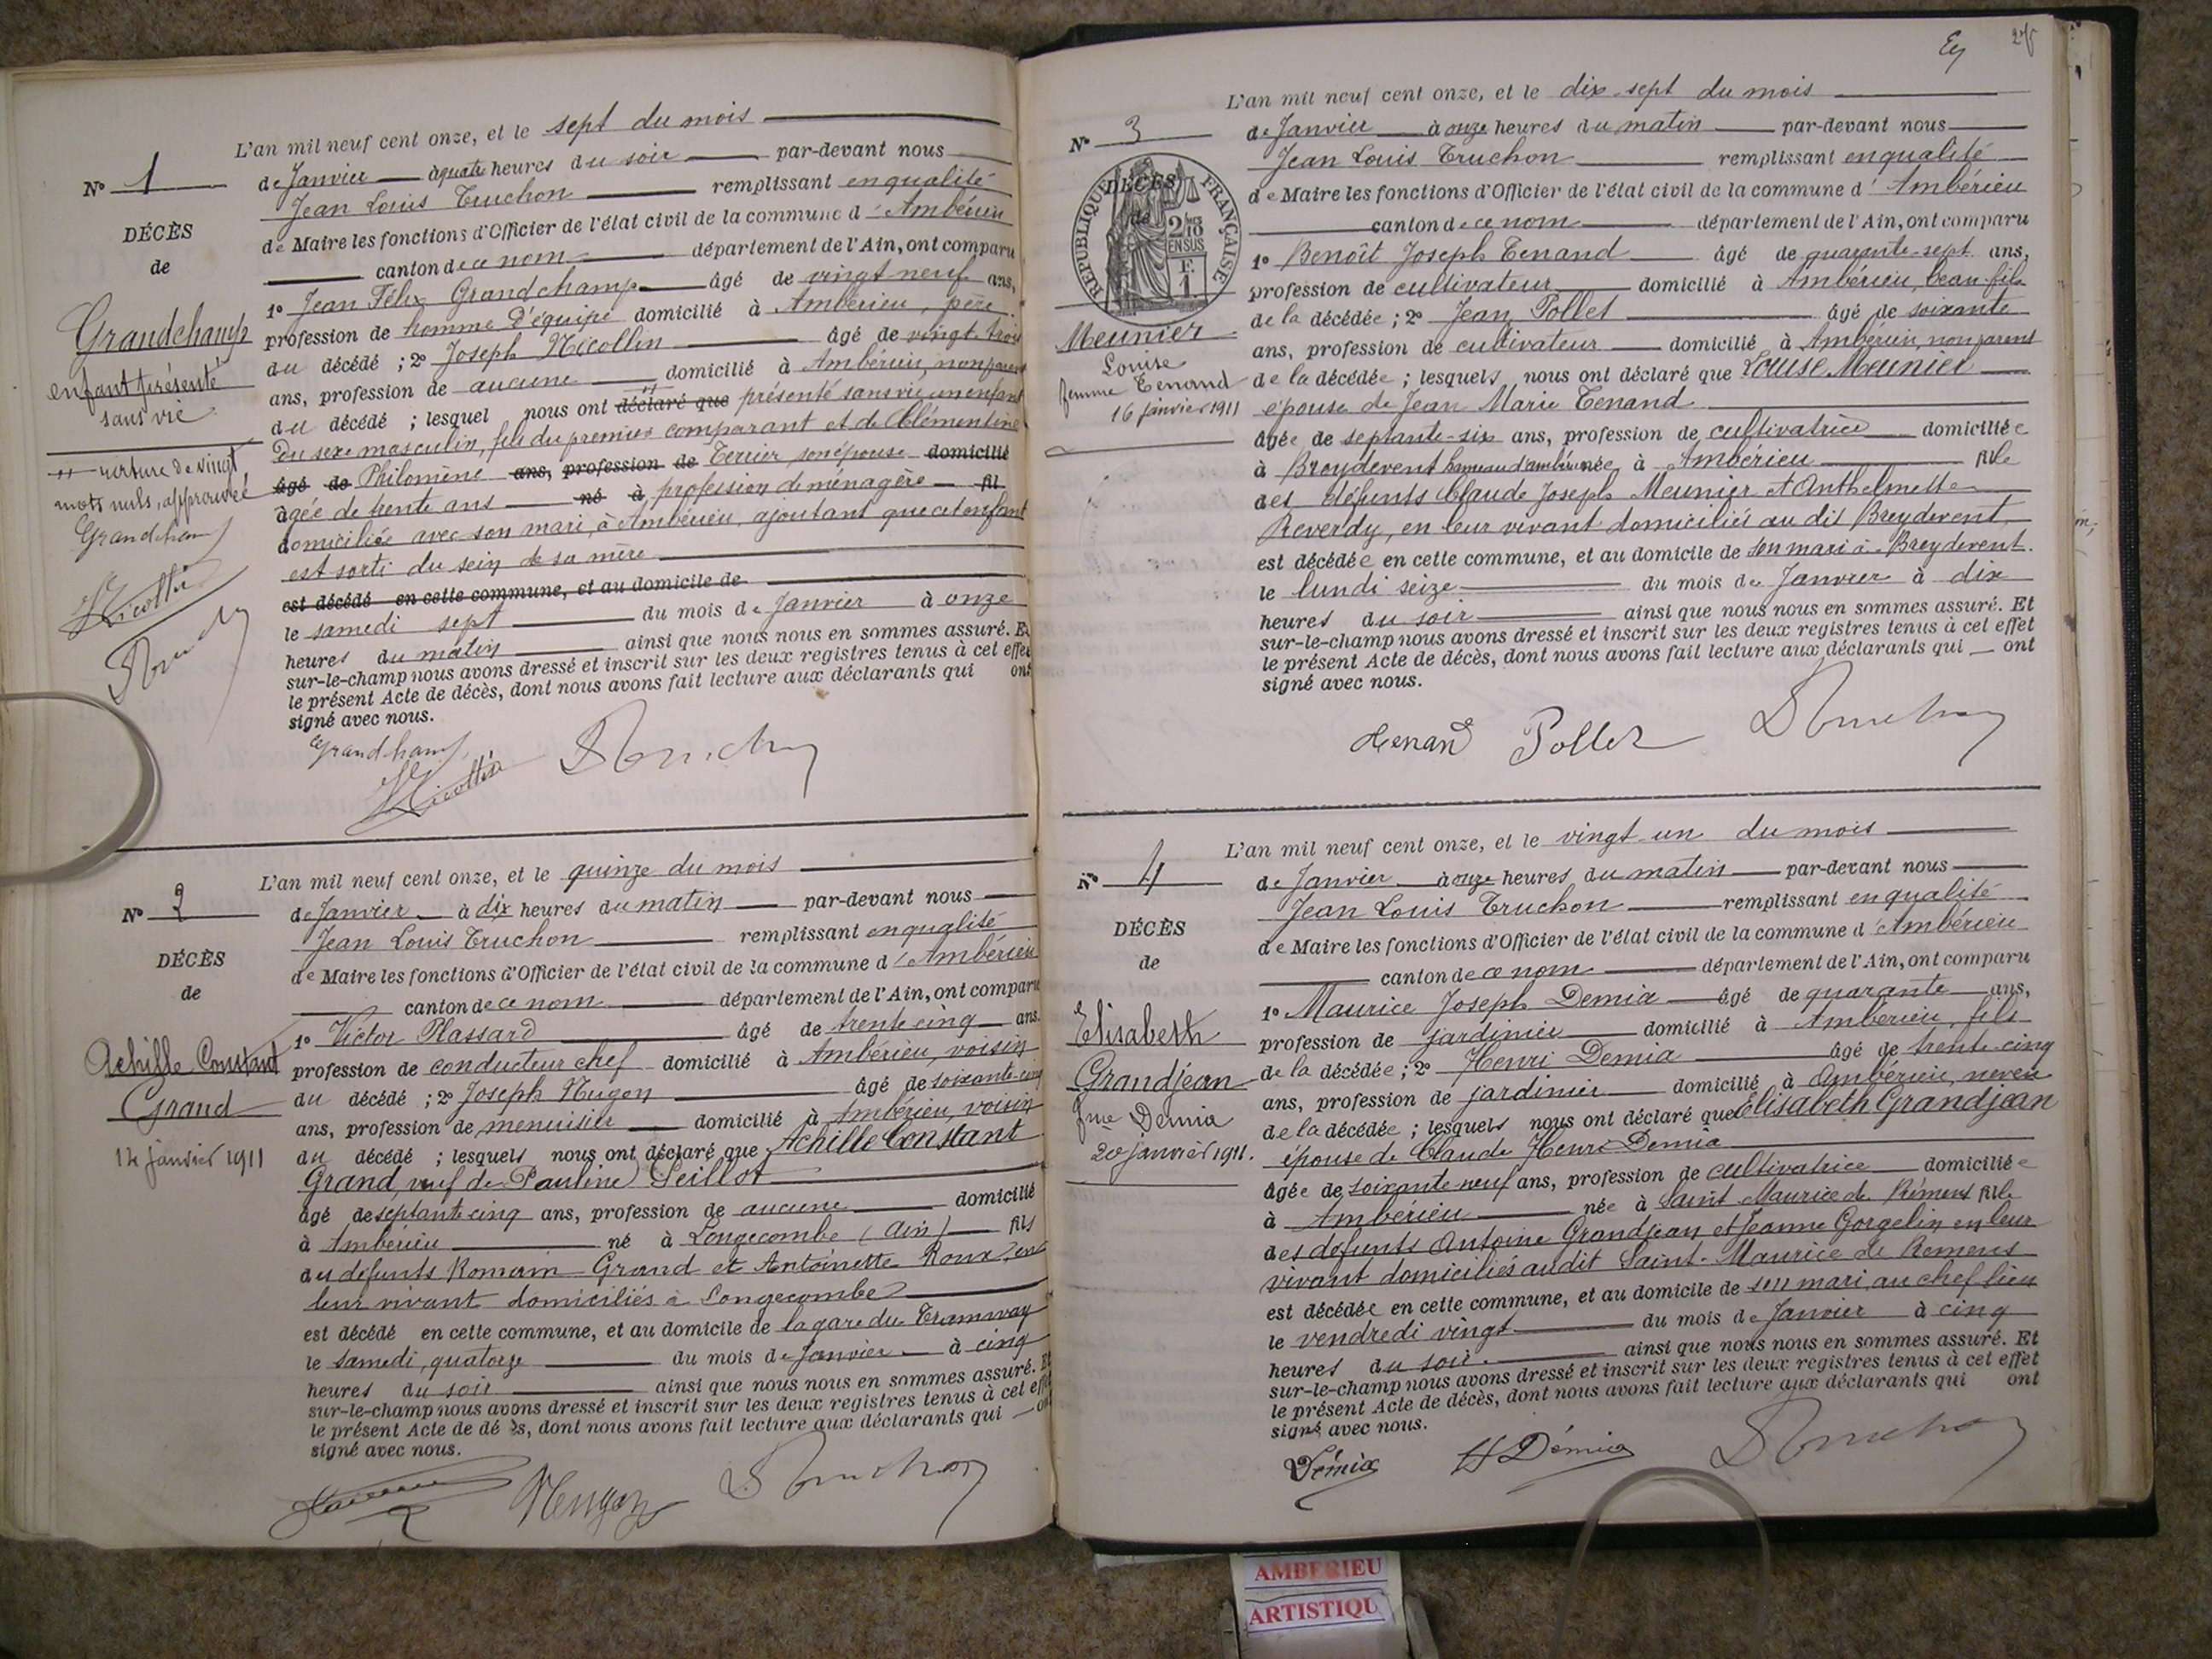 L'an mil neuf cent onze, et le sept du mois
N° 1
de Janvier à quatre heures du soir par-devant nous
Jean Louis Truchon remplissant en qualité
DÉCÈS
de Maire les fonctions d'Officier de l'état civil de la commune d'Ambérieu
de
canton de ce nom département de l'Ain, ont comparu
1° Jean Félix Grandchamp âgé de vingt neuf ans,
Grandchamp
profession de homme d'équipe domicilié à Ambérieu, père
enfant présenté
du décédé ; 2° Joseph Nicollin âgé de vingt-trois
sans vie
ans, profession de aucune domicilié à Ambérieu, non parent
du décédé ; lesquel nous ont déclaré que présenté sans vie un enfant
du sexe masculin, fils du premier comparant et de Clémentine
rature de vingt
âgé de Philomène ans, profession de Terrier son épouse domicilié
mots nuls, approuvée
âgée de trente ans né à profession de ménagère fil
Grandchamp
domiciliée avec son mari, à Ambérieu, ajoutant que cet enfant
est sorti du sein de sa mère
Nicollin
est décédé en cette commune, et au domicile de
le samedi sept du mois de Janvier à onze
heures du matin ainsi que nous nous en sommes assuré. Et
sur-le-champ nous avons dressé et inscrit sur les deux registres tenus à cet effet
le présent Acte de décès, dont nous avons fait lecture aux déclarants qui ont
signé avec nous.
Grandchamp
Nicollin Truchon
L'an mil neuf cent onze, et le quinze du mois
N° 2
de Janvier à dix heures du matin par-devant nous
Jean Louis Truchon remplissant en qualité
DÉCÈS
de Maire les fonctions d'Officier de l'état civil de la commune d'Ambérieu
de
canton de ce nom département de l'Ain, ont comparu
1° Victor Plassard âgé de trente cinq ans.
Achille Constant
profession de conducteur chef domicilié à Ambérieu, voisin
Grand
du décédé ; 2° Joseph Nugon âgé de soixante-cinq
ans, profession de menuisier domicilié à Ambérieu, voisin
14 janvier 1911
du décédé ; lesquels nous ont déclaré que Achille Constant
Grand, veuf de Pauline Seillot
âgé de septante cinq ans, profession de aucune domicilié
à Ambérieu né à Longecombe (Ain) fils
des défunts Romain Grand et Antoinette Roux en
leur vivant domiciliés à Longecombe
est décédé en cette commune, et au domicile de la gare du Tramway
le samedi, quatorze du mois de Janvier à cinq
heures du soir ainsi que nous nous en sommes assuré. Et
sur-le-champ nous avons dressé et inscrit sur les deux registres tenus à cet effet
le présent Acte de dé ès, dont nous avons fait lecture aux déclarants qui ont
signé avec nous.
Nugon Truchon
L'an mil neuf cent onze, et le dix-sept du mois
N° 3
de Janvier à onze heures du matin par-devant nous
Jean Louis Truchon remplissant en qualité
DÉCÈS
de
RÉPUBLIQUE FRANÇAISE
2/10 EN SUS
F. 1
de Maire les fonctions d'Officier de l'état civil de la commune d'Ambérieu
canton de ce nom département de l'Ain, ont comparu
1° Benoît Joseph Tenand âgé de quarante-sept ans,
profession de cultivateur domicilié à Ambérieu, beau-fils
Meunier
de la décédée ; 2° Jean Pollet âgé de soixante
Louise
ans, profession de cultivateur domicilié à Ambérieu, non parent
femme Tenand
de la décédée ; lesquels nous ont déclaré que Louise Meunier
16 janvier 1911
épouse de Jean Marie Tenand
âgée de septante-six ans, profession de cultivatrice domiciliée
à Breydevent hameau d'Ambérieu née à Ambérieu fille
des défunts Claude Joseph Meunier et Anthelmette
Reverdy, en leur vivant domiciliés au dit Breydevent
est décédée en cette commune, et au domicile de son mari à Breydevent.
le lundi seize du mois de Janvier à dix
heures du soir ainsi que nous nous en sommes assuré. Et
sur-le-champ nous avons dressé et inscrit sur les deux registres tenus à cet effet
le présent Acte de décès, dont nous avons fait lecture aux déclarants qui ont
signé avec nous.
Tenand Pollet Truchon
L'an mil neuf cent onze, et le vingt un du mois
N° 4
de Janvier à onze heures du matin par-devant nous
Jean Louis Truchon remplissant en qualité
DÉCÈS
de Maire les fonctions d'Officier de l'état civil de la commune d'Ambérieu
de
canton de ce nom département de l'Ain, ont comparu
1° Maurice Joseph Demia âgé de quarante ans,
Elisabeth
profession de jardinier domicilié à Ambérieu, fils
Grandjean
de la décédée ; 2° Henri Demia âgé de trente-cinq
fme Demia
ans, profession de jardinier domicilié à Ambérieu, neveu
20 janvier 1911.
de la décédée ; lesquels nous ont déclaré que Elisabeth Grandjean
épouse de Claude Henri Demia
âgée de soixante-neuf ans, profession de cultivatrice domiciliée
à Ambérieu née à Saint Maurice de Rémens fille
des défunts Antoine Grandjean et Jeanne Gorgelin en leur
vivant domiciliés audit Saint-Maurice de Remens
est décédée en cette commune, et au domicile de son mari, au chef lieu
le vendredi vingt du mois de Janvier à cinq
heures du soir. ainsi que nous nous en sommes assuré. Et
sur-le-champ nous avons dressé et inscrit sur les deux registres tenus à cet effet
le présent Acte de décès, dont nous avons fait lecture aux déclarants qui ont
signé avec nous.
Démia H Démia Truchon
AMBERIEU
ARTISTIQU